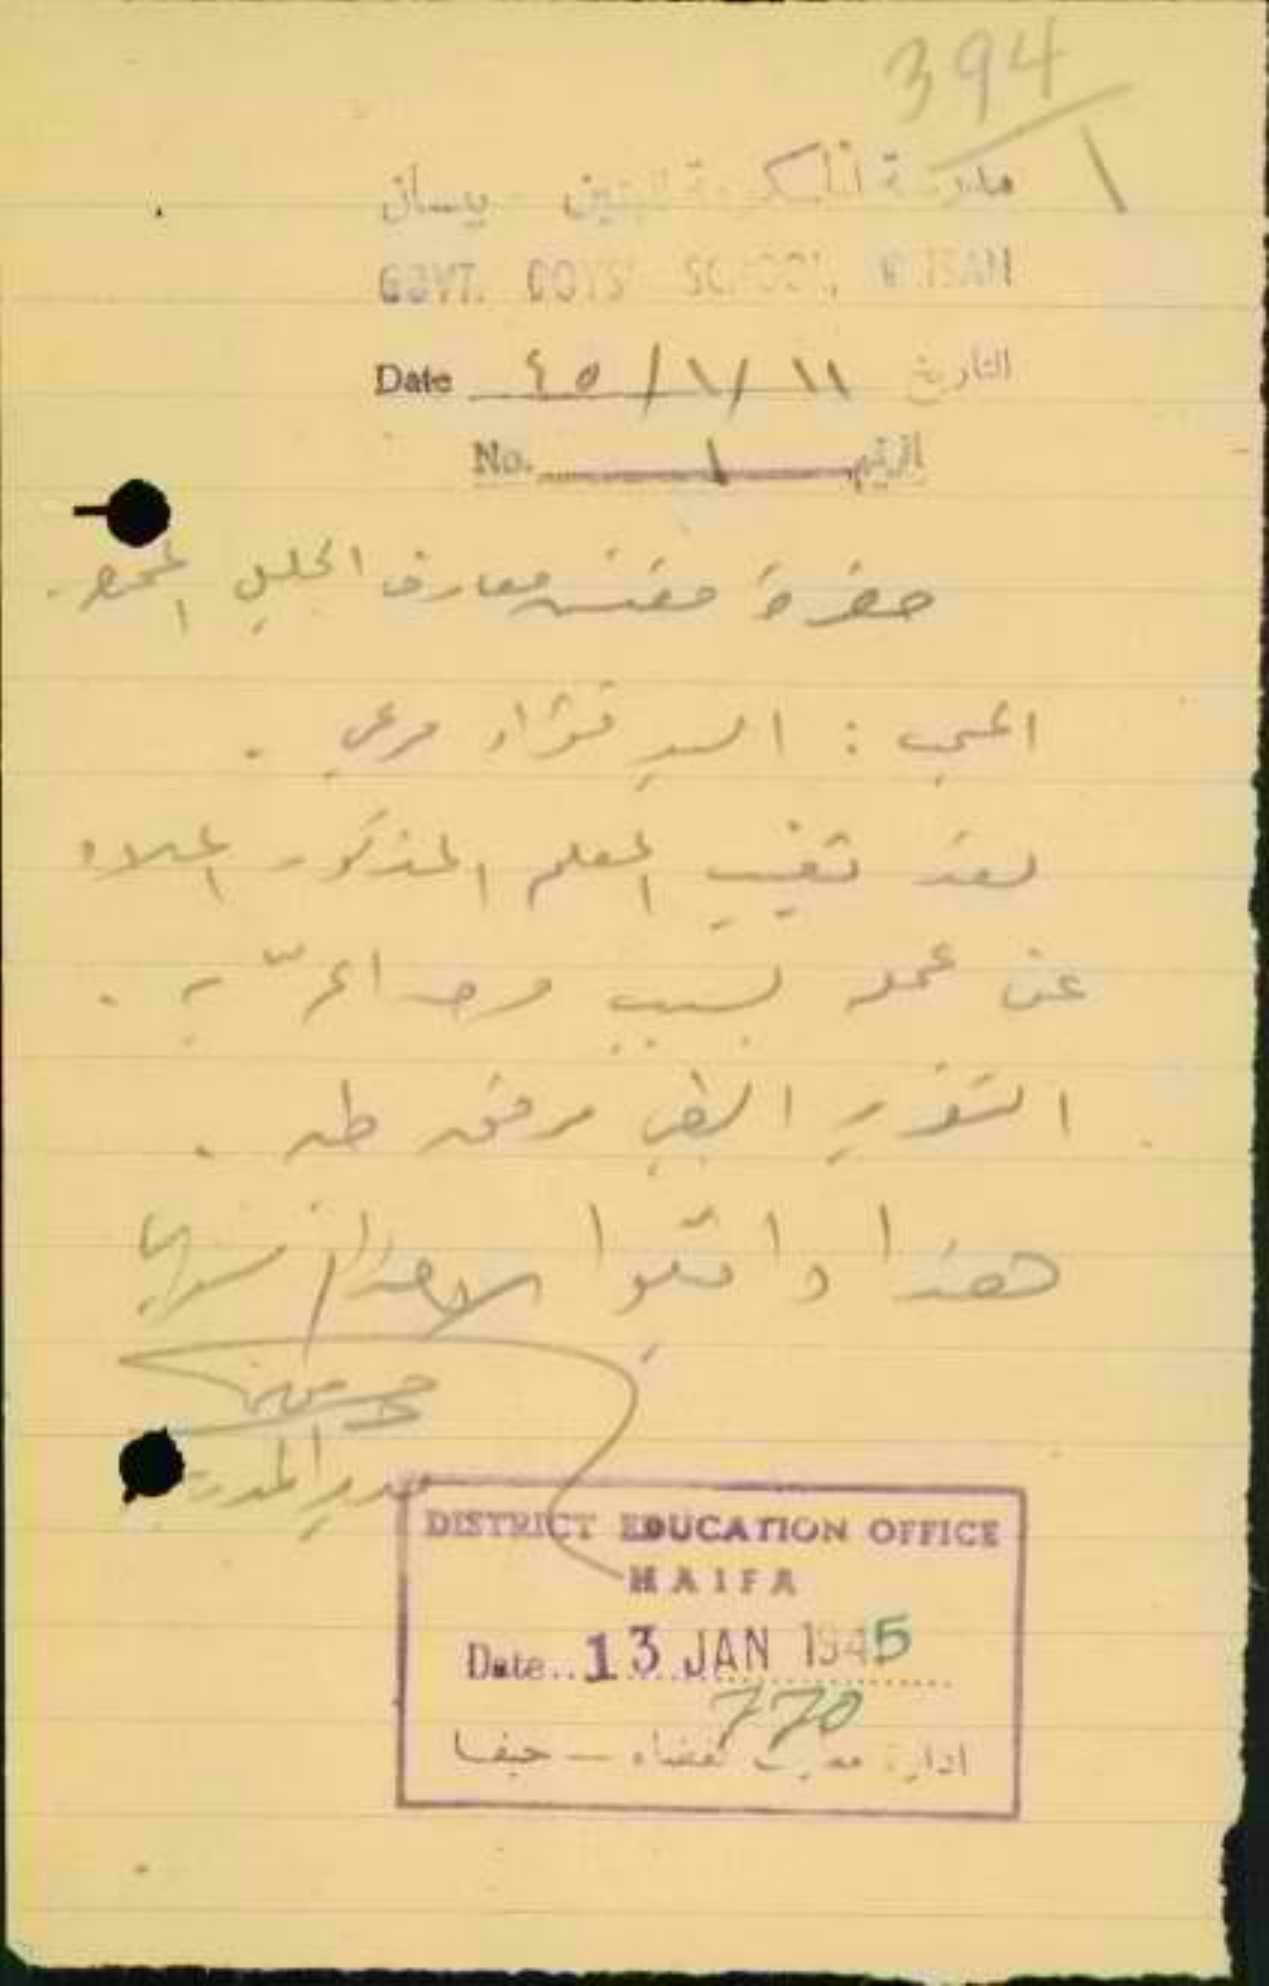 394
1
مدرسة الحكومة للبنين - بيسان
GOVT. BOYS' SCHOOL, BEISAN
Date ٤٥/١/١١ التاريخ
No. ١ الرقم
حضرة مفتش معارف الجليل المحترم
الموضوع : السيد فؤاد مرعي .
لقد تغيب المعلم المذكور اعلاه
عن عمله بسبب .
التقرير الطبي مرفق طيه .
هذا واقبلوا الاحترام سيدي
مدير المدرسة
DISTRICT EDUCATION OFFICE
HAIFA
Date.. 13 JAN 1945
770
ادارة معارف القضاء — حيفا